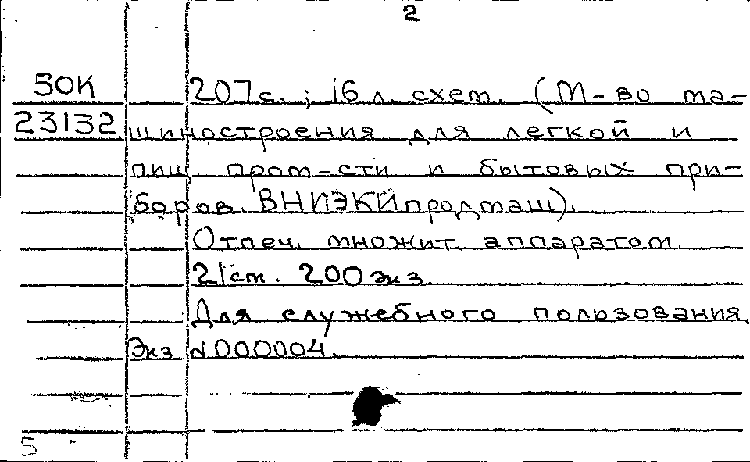 2
30К 207 с.; 16 л. схем. (М-во ма-
23132 шиностроения для легкой и
пищ. пром-сти и бытовых при-
боров. ВНИЭКИпродмаш).
Отпеч. множит. аппаратом.
21 см. 200 экз.
Для служебного пользования.
Экз. N000004.
5